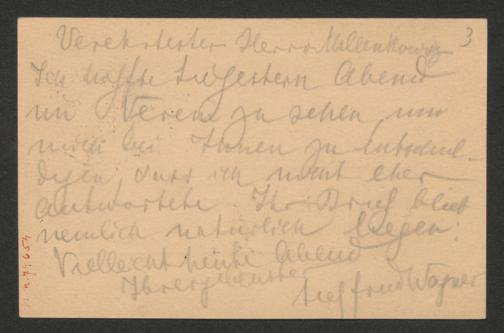 Verehrtester Herr v. Millenkovics 3
Ich hoffte Sie gestern Abend
im Verein zu sehen, um
mich bei Ihnen zu entschul-
digen dass ich nicht eher
antwortete. Ihr Brief blieb
nemlich natürlich liegen.
Vielleicht heute Abend
Ihr ergebenster
Siegfried Wagner